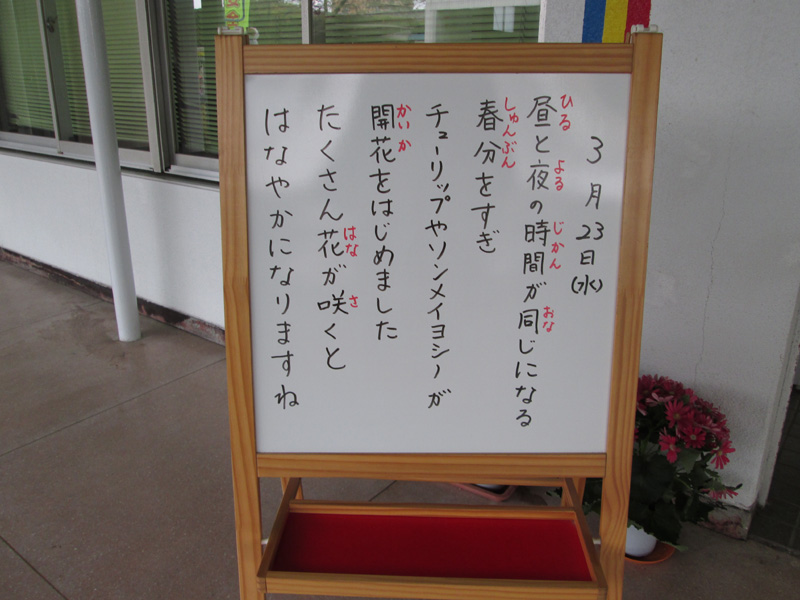 3月23日(水)
昼と夜の時間が同じになる
ひる よる じかん おな
春分をすぎ
しゅんぶん
チューリップやソンメイヨシノが
開花をはじめました
かいか
たくさん花が咲くと
はな さ
はなやかになりますね